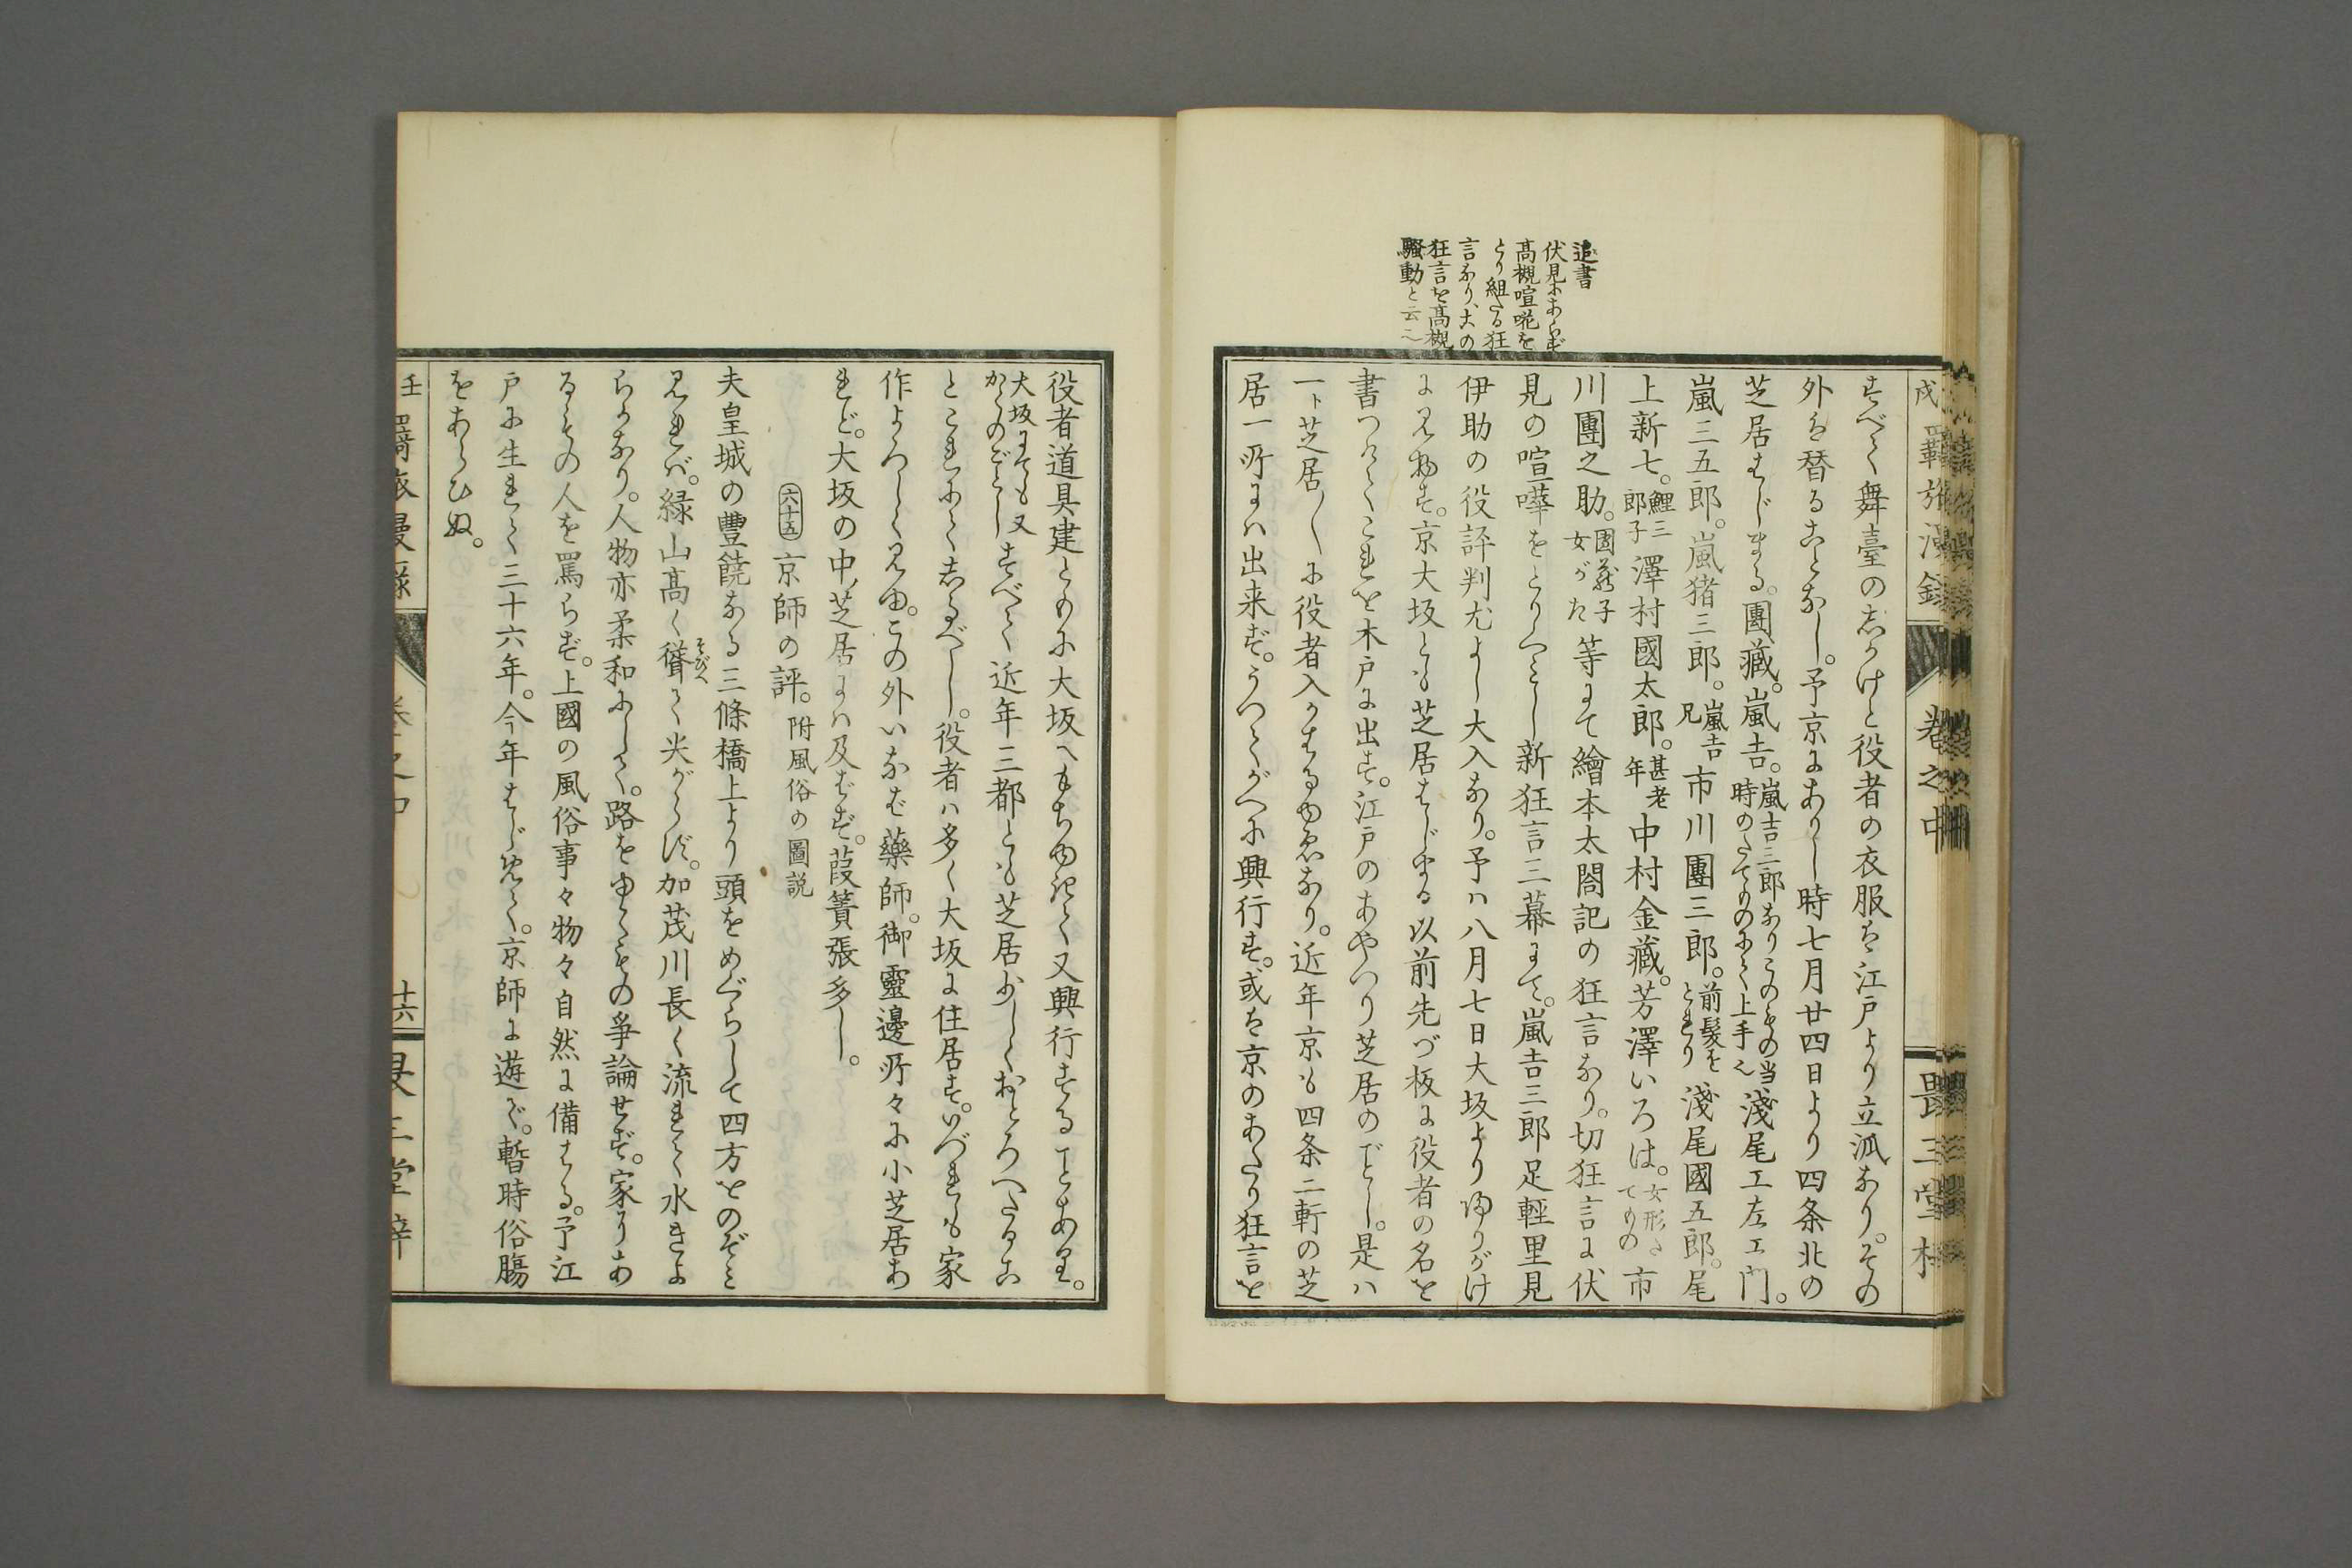 追書
伏見にあらず
高槻喧𠵅を
とり組たる狂
言なり、大の
狂言を高槻
騒動と云
戌 羇旅漫録 巻之中 畏三堂
すべて舞臺のしかけと役者の衣服は江戸より立派なり。その
外は替ることなし。予京にありし時七月廿四日より四条北の
芝居はじまる。團藏。嵐吉。嵐吉三郎なりこのもの当時のたてものにて上手也 淺尾工左エ門。
嵐三五郎。嵐猪三郎。嵐吉兄 市川團三郎。前髪をとれり 淺尾國五郎。尾
上新七。鯉三郎子 澤村國太郎。甚老年 中村金藏。芳澤いろは。女形たてもの 市
川團之助。團藏子女がた 等にて繪本太閤記の狂言なり。切狂言に伏
見の喧嘩をとりくみし新狂言三幕にて。嵐吉三郎足輕里見
伊助の役評判尤よし大入なり。予ハ八月七日大坂より帰りがけ
に見物す。京大坂とも芝居はじまる以前先づ板に役者の名を
書つけてこれを木戸に出す。江戸のあやつり芝居のごとし。是ハ
一ト芝居〳〵に役者入かはるゆゑなり。近年京も四条二軒の芝
居一所にハ出来ず。うつてがへに興行す。或は京のあたり狂言を
役者道具建ともに大坂へもちゆきて又興行することあり。
大坂にても又かくのごとし すべて近年三都とも芝居少しくおとろへたるこ
とこれにてしるべし。役者ハ多く大坂に住居す。いづれも家
作よろしく見ゆ。この外いなば藥師。御靈邊所々に小芝居あ
れど。大坂の中芝居にハ及ばず。葭簀張多し。
六十五 京師の評。附風俗の圖説
夫皇城の豐饒なる三條橋上より頭をめぐらして四方をのぞみ
見れバ。緑山高く聳そびへて尖がらず。加茂川長く流れて水きよ
らかなり。人物亦柔和にして。路をゆくもの争論せず。家にあ
るもの人を罵らず。上國の風俗事々物々自然に備はる。予江
戸に生れて三十六年。今年はじめて。京師に遊ぶ。暫時俗腸
をあらひぬ。
壬 羇旅漫録 巻之中 十六 畏三堂梓